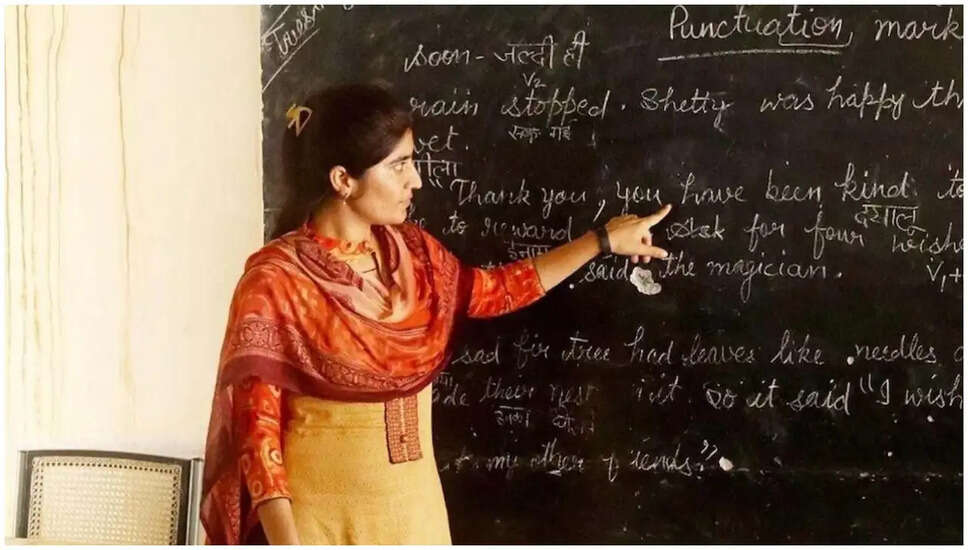 Tuesd
Punctuation mark
soon - जल्दी ही
V2
rain stopped. Shetty was happy th
रुक गई
wet.
"Thank you, you have been kind to
दयालु
to reward Ask for four wishe
इनाम
said the magician. V1+
sad fir tree had leaves like needles
de their nest it. So it said "I wish
उनका
my other friends."